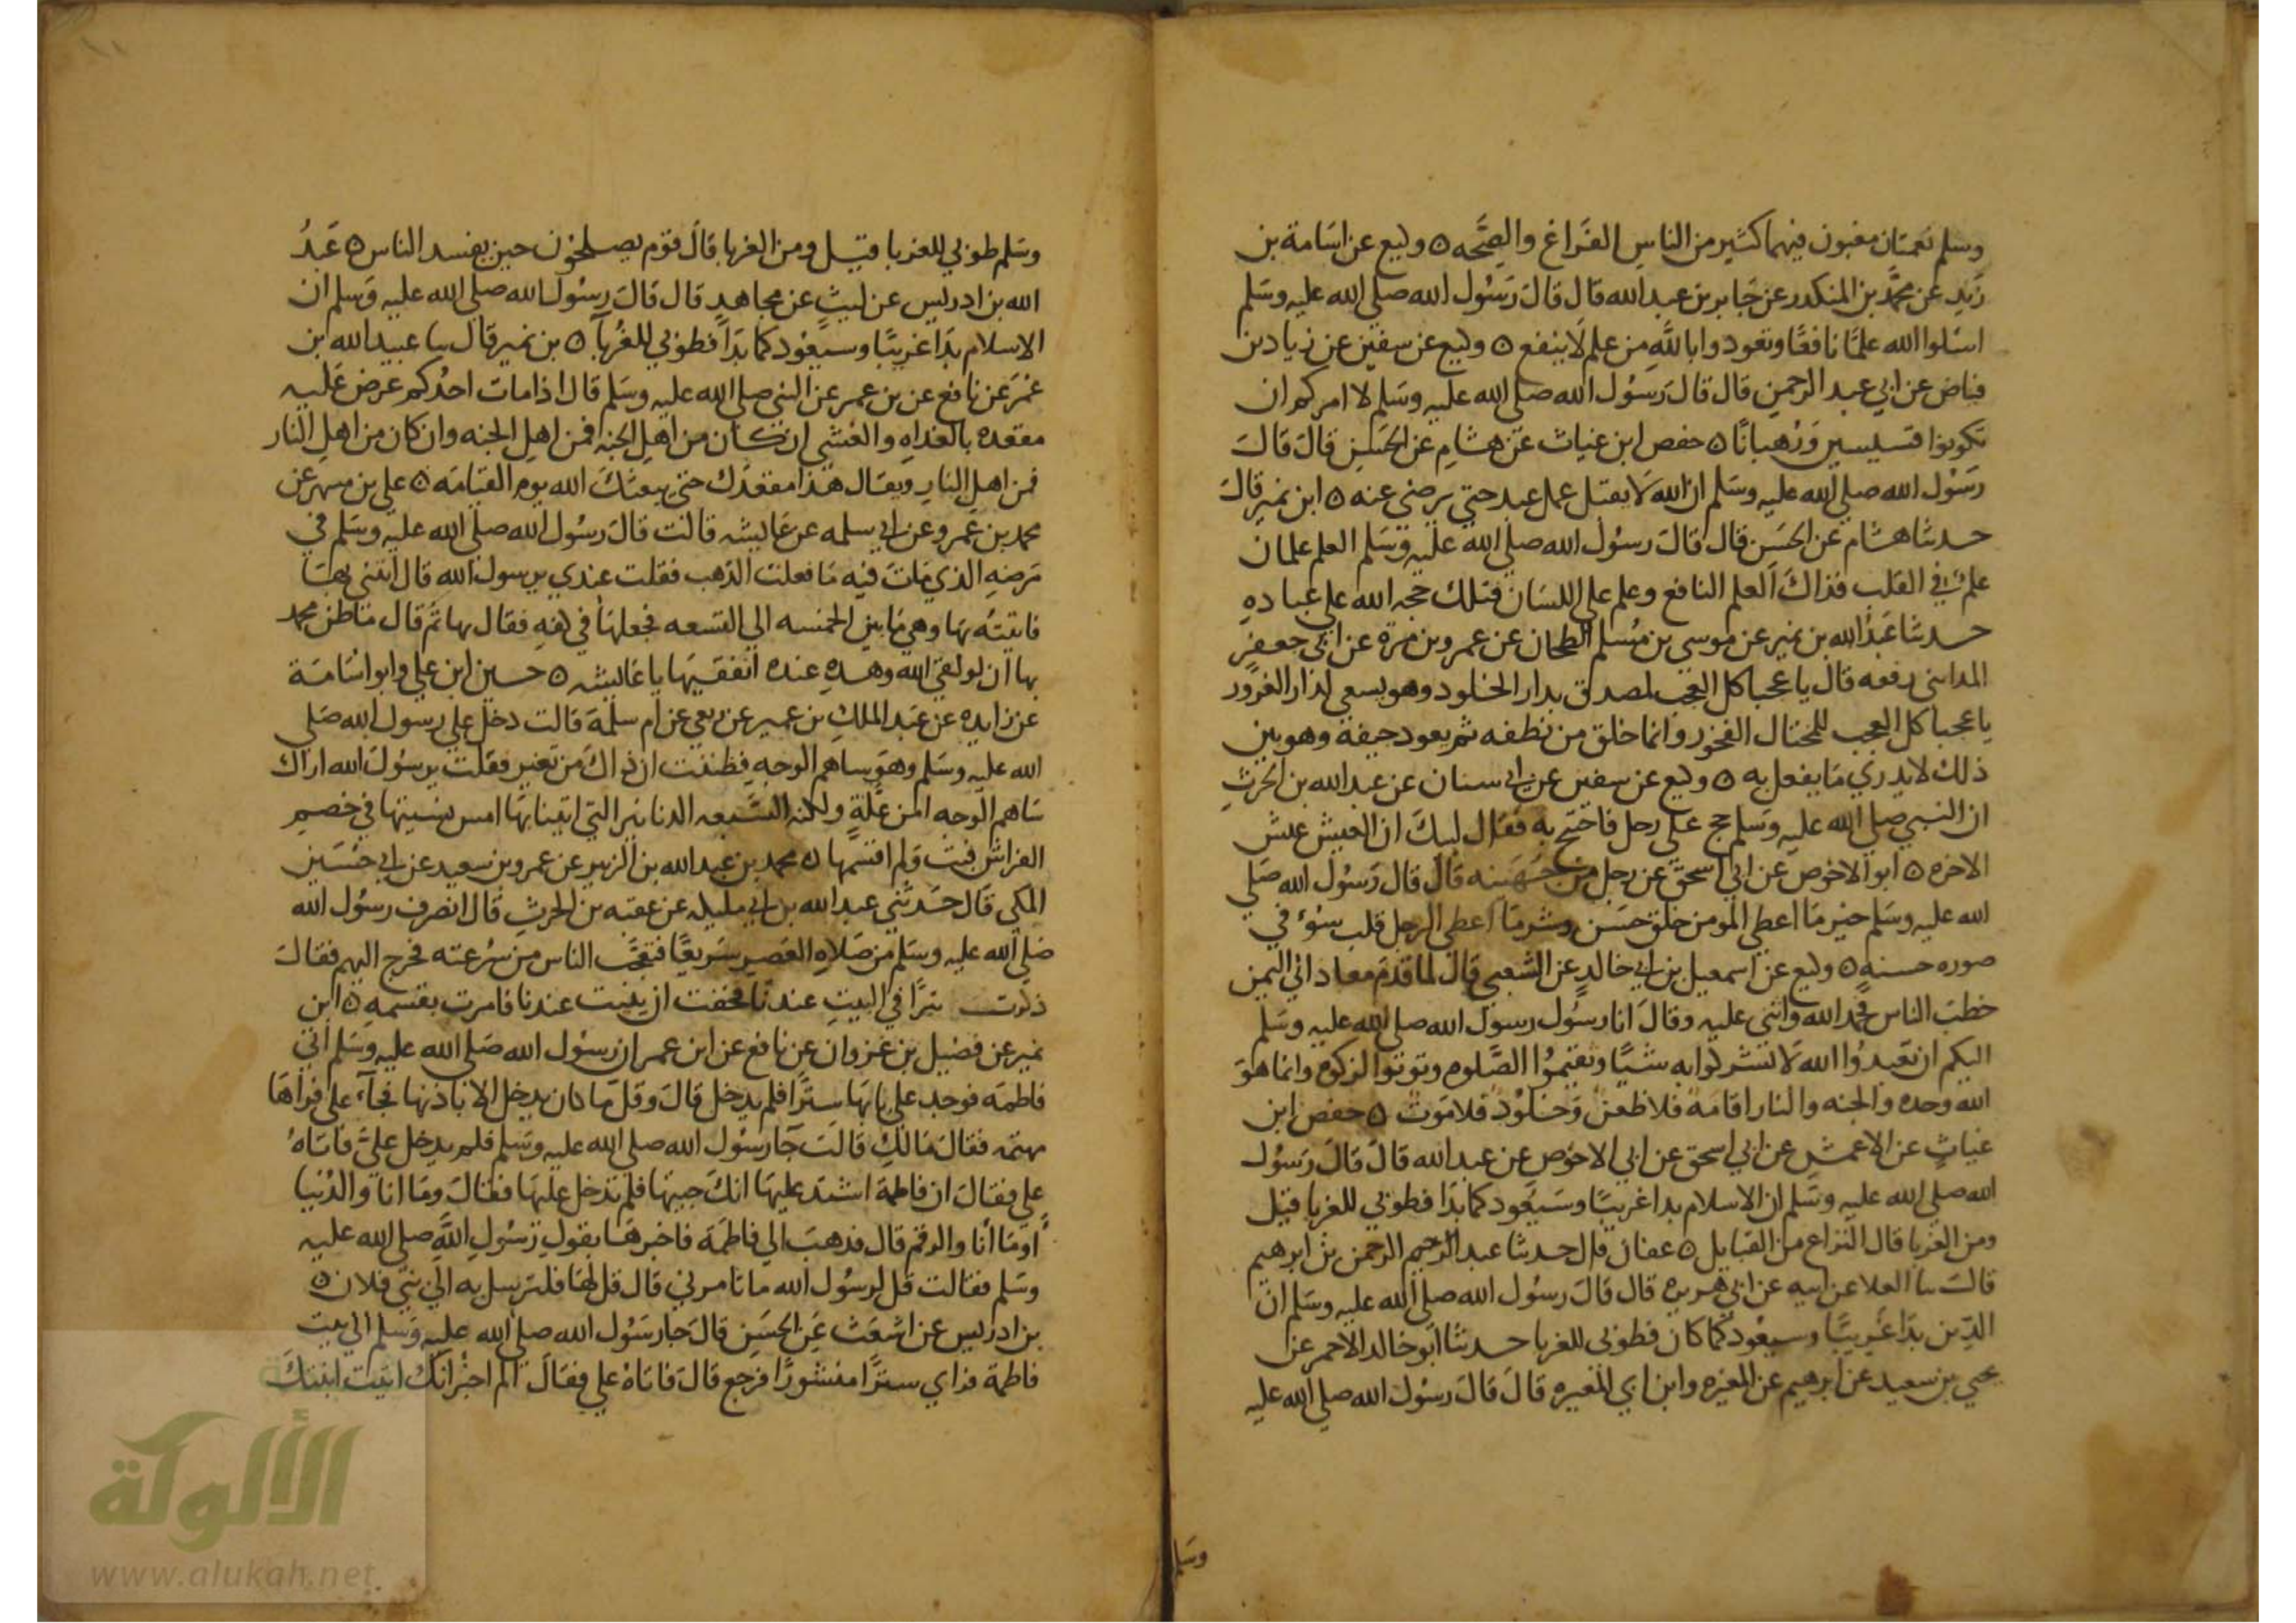 وسلم نعمتان مغبون فيهما كثير من الناس الفراغ والصحه ٥ وكيع عن اسامة بن
زيد عن محمد بن المنكدر عن جابر بن عبد الله قال قال رسول الله صلى الله عليه وسلم
اسئلوا الله علما نافعا وتعوذوا بالله من علم لا ينفع ٥ وكيع عن سفين عن زياد بن
فياض عن ابي عبد الرحمن قال قال رسول الله صلى الله عليه وسلم لا امركم ان
تكونوا قسيسين ورهبانا ٥ حفص ابن غياث عن هشام عن الحسن قال قال
رسول الله صلي الله عليه وسلم ان الله لا يقبل عمل عبد حتي يرضي عنه ٥ ابن نمير قال
حدثنا هشام عن الحسن قال قال رسول الله صلي الله عليه وسلم العلم علمان
علم في القلب فذاك العلم النافع وعلم علي اللسان فتلك حجه الله علي عباده
حدثنا عبد الله بن نمير عن موسي بن مسلم الطحان عن عمرو بن مرة عن ابي جعفر
المدايني رفعه قال يا عجبا كل العجب لمصدق بدار الخلود وهو يسعي لدار الغرور
يا عجبا كل العجب للمختال الفخور وانما خلق من نطفه ثم يعود جيفة وهو بين
ذلك لا يدري ما يفعل به ٥ وكيع عن سفين عن ابي سنان عن عبد الله بن الحرث
ان النبي صلي الله عليه وسلم حج علي رحل فاحتج به فقال لبيك ان العيش عيش
الاخره ٥ ابو الاحوص عن ابي اسحق عن رجل من جهينه قال قال رسول الله صلي
الله عليه وسلم خير ما اعطي المومن خلق حسن وشر ما اعطي الرجل قلب سوء في
صوره حسنه ٥ وكيع عن اسمعيل بن ابي خالد عن الشعبي قال لما قدم معاذ الي اليمن
خطب الناس فحمد الله واثني عليه وقال انا رسول رسول الله صلي الله عليه وسلم
اليكم ان تعبدوا الله لا تشركوا به شيئا وتقيموا الصلوه وتوتوا الزكوه وانما هو
الله وحده والجنه والنار اقامة فلا ظعن وخلود فلا موت ٥ حفص ابن
غياث عن الاعمش عن ابي اسحق عن ابي الاحوص عن عبد الله قال قال رسول
الله صلي الله عليه وسلم ان الاسلام بدا غريبا وسيعود كما بدا فطوبي للغربا قيل
ومن الغربا قال النزاع من القبايل ٥ عفان قال حدثنا عبد الرحمن بن ابرهيم
قال سا العلا عن ابيه عن ابي هريره قال قال رسول الله صلي الله عليه وسلم ان
الدين بدا غريبا وسيعود كما كان فطوبي للغربا حدثنا ابو خالد الاحمر عن
يحيي بن سعيد عن ابرهيم عن المغيره وابن ابي المغيره قال قال رسول الله صلي الله عليه
وسلم
وسلم طوبي للغربا قيل ومن الغربا قال قوم يصلحون حين يفسد الناس ٥ عبد
الله بن ادريس عن ليث عن مجاهد قال قال رسول الله صلي الله عليه وسلم ان
الاسلام بدا غريبا وسيعود كما بدا فطوبي للغربا ٥ بن نمير قال سا عبيد الله بن
عمر عن نافع عن بن عمر عن النبي صلي الله عليه وسلم قال اذا مات احدكم عرض عليه
مقعده بالغداه والعشي ان كان من اهل الجنه فمن اهل الجنه وان كان من اهل النار
فمن اهل النار ويقال هذا مقعدك حتي يبعثك الله يوم القيامه ٥ علي بن مسهر عن
محمد بن عمرو عن ابي سلمه عن عايشه قالت قال رسول الله صلي الله عليه وسلم في
مرضه الذي مات فيه ما فعلت الذهب فقلت عندي يرسول الله قال ايتني بها
فاتيته بها وهي ما بين الخمسه الي التسعه فجعلها في كفه فقال بها ثم قال ما ظن محمد
بها ان لو لقي الله وهذه عنده انفقيها يا عايشه ٥ حسين ابن علي وابو اسامة
عن زايده عن عبد الملك بن عمير عن ربعي عن ام سلمة قالت دخل علي رسول الله صلي
الله عليه وسلم وهو ساهم الوجه فظننت ان ذاك من تغير فقلت يرسول الله اراك
ساهم الوجه امن علة ولكنه السبعه الدنانير التي اتينا بها امس نسيتها في خصم
الفراش فبت ولم اقسمها ٥ محمد بن عبد الله بن الزبير عن عمرو بن سعيد عن ابي حسين
المكي قال حدثني عبد الله بن ابي مليكه عن عقبه بن الحرث قال انصرف رسول الله
صلي الله عليه وسلم من صلاه العصر سريعا فتعجب الناس من سرعته فخرج اليهم فقال
ذكرت تبرا في البيت عندنا فخفت ان يبيت عندنا فامرت بقسمه ٥ ابن
نمير عن فضيل بن غزوان عن نافع عن ابن عمر ان رسول الله صلي الله عليه وسلم اتي
فاطمة فوجد علي بابها سترا فلم يدخل قال وقل ما كان يدخل الا باذنها فجاء علي فراها
مهتمه فقال مالك قالت جا رسول الله صلي الله عليه وسلم فلم يدخل علي فاتاه
علي فقال ان فاطمة اشتد عليها انك جيتها فلم تدخل عليها فقال وما انا والدنيا
او ما انا والرقم قال فذهب الي فاطمة فاخبرها بقول رسول الله صلي الله عليه
وسلم فقالت قل لرسول الله ما تامرني قال قل لها فلترسل به الي بني فلان ٥
بن ادريس عن اشعث عن الحسن قال جا رسول الله صلي الله عليه وسلم الي بيت
فاطمة فراي سترا منشورا فرجع قال فاتاه علي فقال الم اخبر انك اتيت ابنتك
الألوكة
www.alukah.net